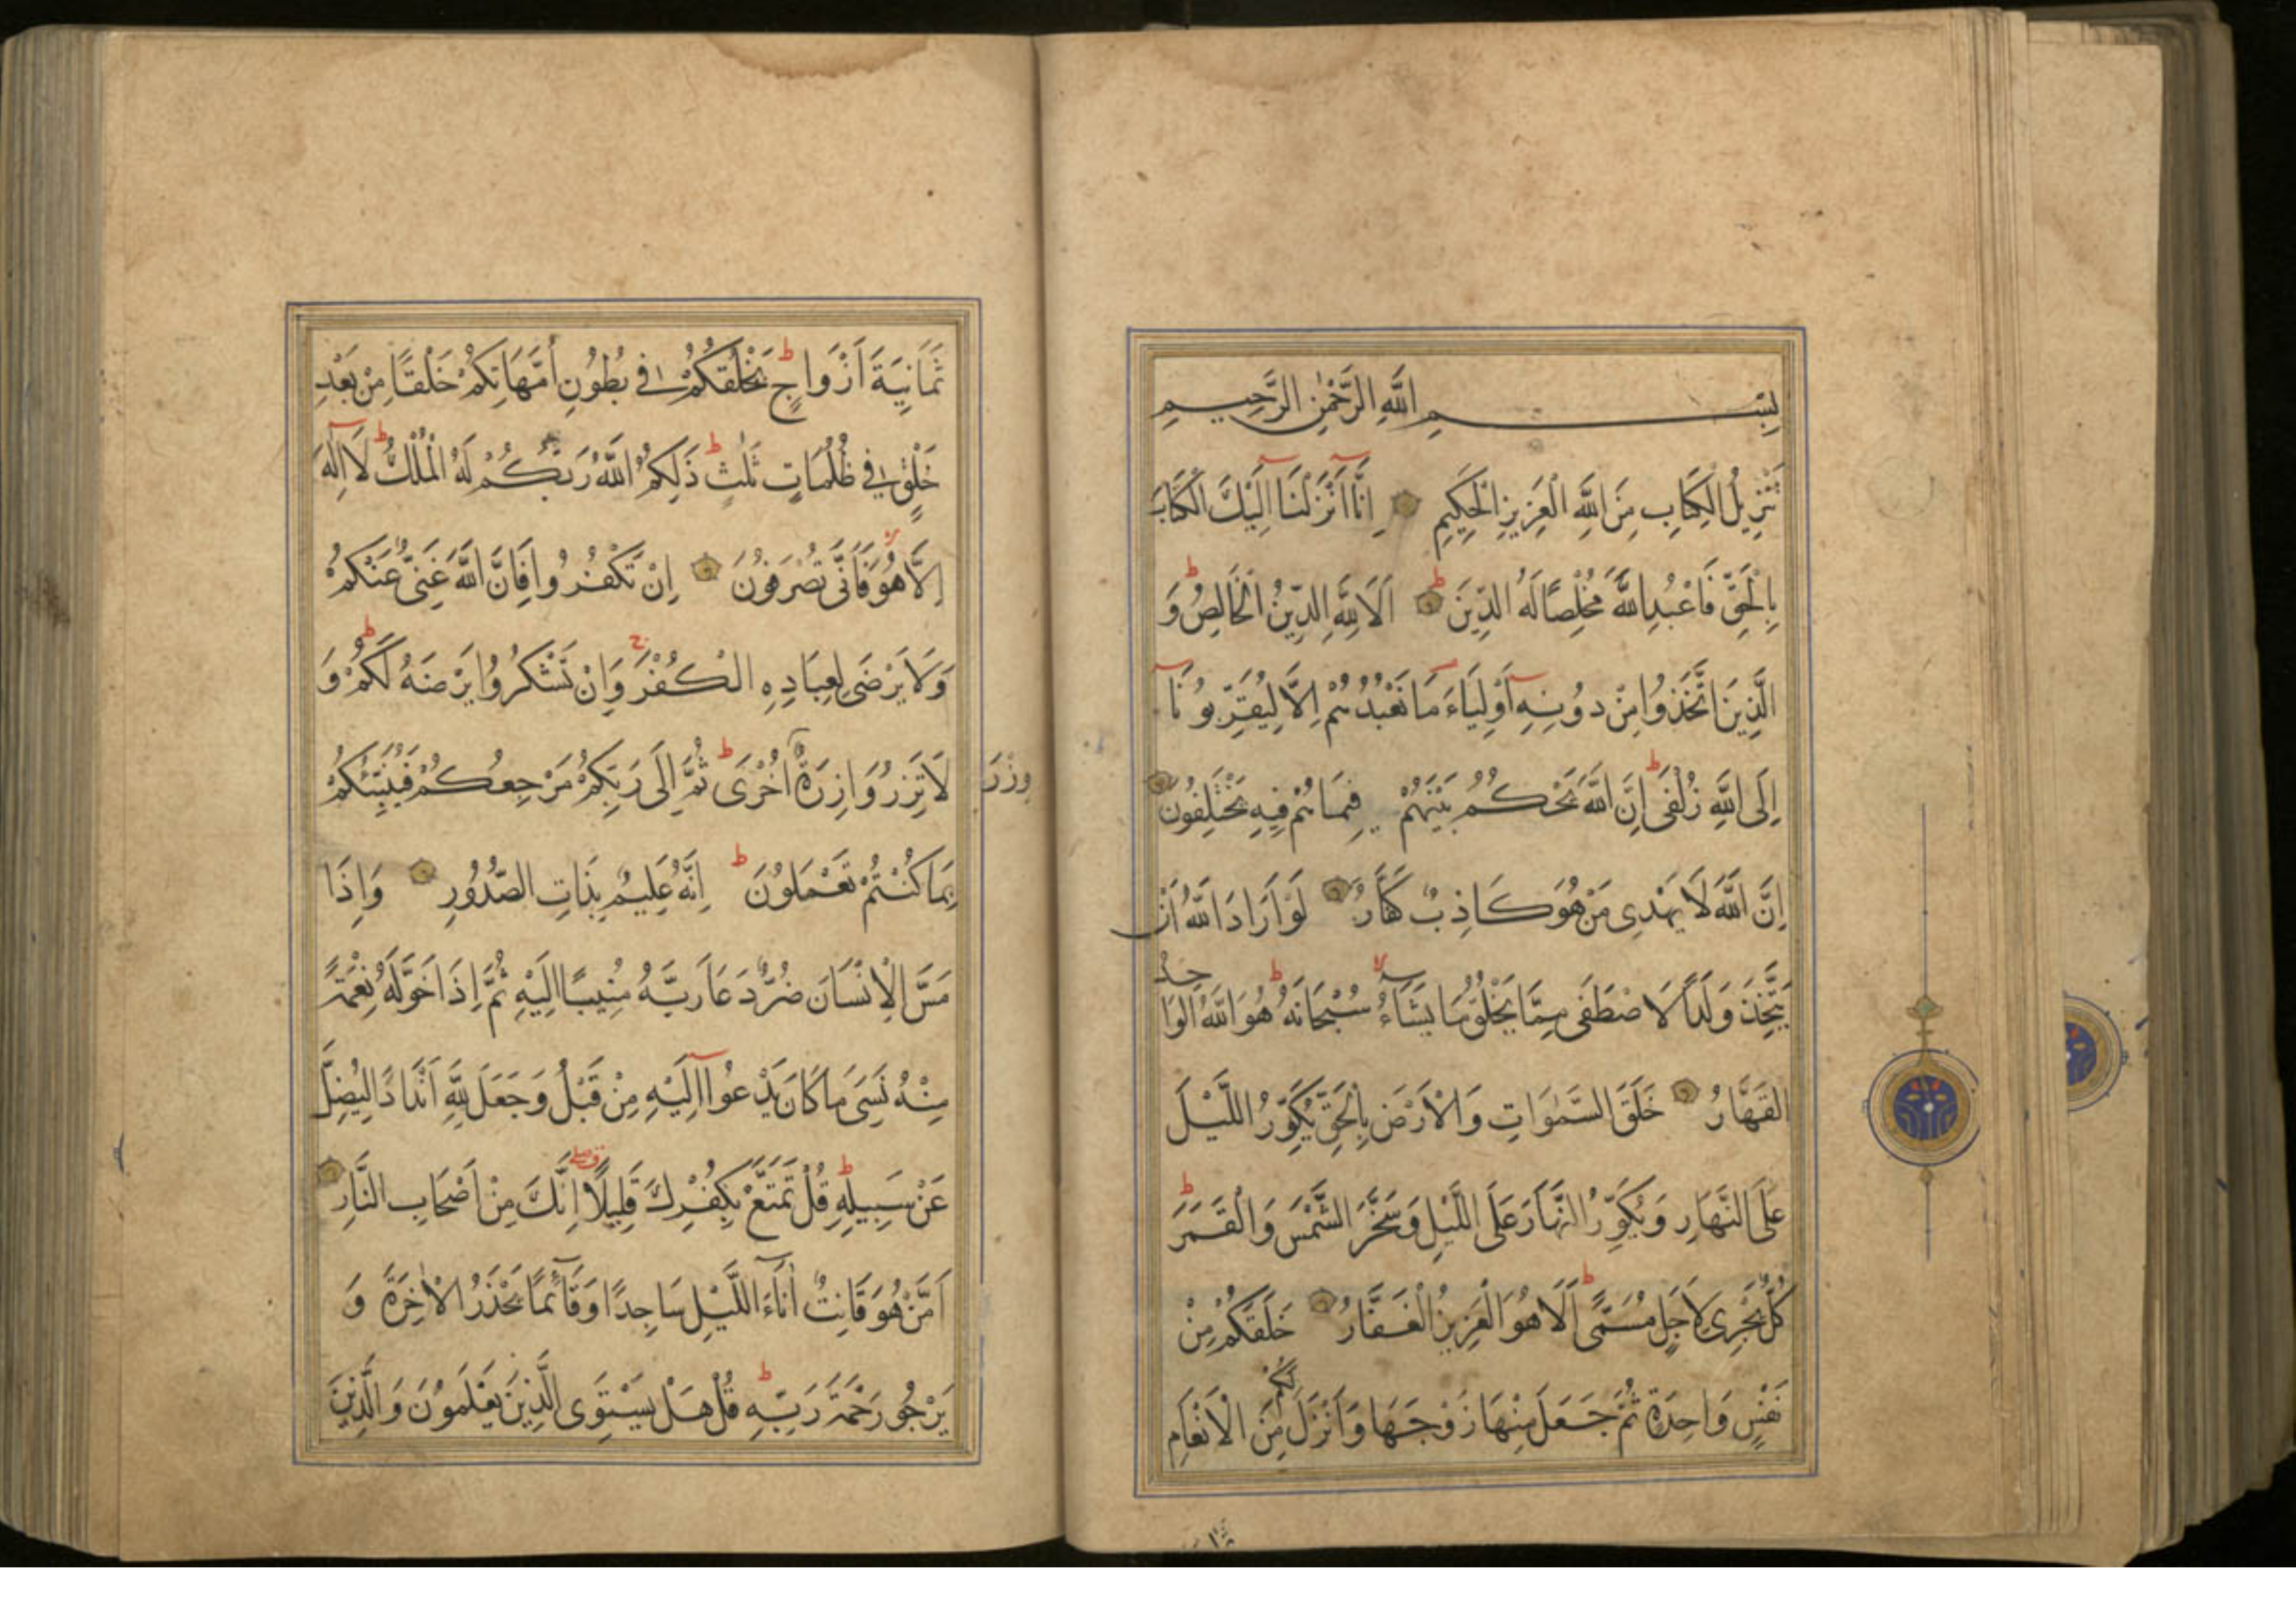 بِسْمِ اللَّهِ الرَّحْمٰنِ الرَّحِيمِ
تَنْزِيلُ الْكِتَابِ مِنَ اللَّهِ الْعَزِيزِ الْحَكِيمِ اِنَّا اَنْزَلْنَا اِلَيْكَ الْكِتَابَ
بِالْحَقِّ فَاعْبُدِ اللَّهَ مُخْلِصًا لَهُ الدِّينَ اَلَا لِلَّهِ الدِّينُ الْخَالِصُ وَ
الَّذِينَ اتَّخَذُوا مِنْ دُونِهِ اَوْلِيَاءَ مَا نَعْبُدُهُمْ اِلَّا لِيُقَرِّبُونَا
اِلَى اللَّهِ زُلْفَى اِنَّ اللَّهَ يَحْكُمُ بَيْنَهُمْ فِيمَا هُمْ فِيهِ يَخْتَلِفُونَ
اِنَّ اللَّهَ لَا يَهْدِى مَنْ هُوَ كَاذِبٌ كَفَّارٌ لَوْ اَرَادَ اللَّهُ اَنْ
يَتَّخِذَ وَلَدًا لَا صْطَفَى مِمَّا يَخْلُقُ مَا يَشَاءُ سُبْحَانَهُ هُوَ اللَّهُ الْوَاحِدُ
الْقَهَّارُ خَلَقَ السَّمٰوَاتِ وَالْاَرْضَ بِالْحَقِّ يُكَوِّرُ اللَّيْلَ
عَلَى النَّهَارِ وَيُكَوِّرُ النَّهَارَ عَلَى اللَّيْلِ وَسَخَّرَ الشَّمْسَ وَالْقَمَرَ
كُلٌّ يَجْرِى لِاَجَلٍ مُسَمًّى اَلَا هُوَ الْعَزِيزُ الْغَفَّارُ خَلَقَكُمْ مِنْ
نَفْسٍ وَاحِدَةٍ ثُمَّ جَعَلَ مِنْهَا زَوْجَهَا وَاَنْزَلَ لَكُمْ مِنَ الْاَنْعَامِ
ثَمَانِيَةَ اَزْوَاجٍ يَخْلُقُكُمْ فِى بُطُونِ اُمَّهَاتِكُمْ خَلْقًا مِنْ بَعْدِ
خَلْقٍ فِى ظُلُمَاتٍ ثَلٰثٍ ذَلِكُمُ اللَّهُ رَبُّكُمْ لَهُ الْمُلْكُ لَا اِلٰهَ
اِلَّا هُوَ فَاَنَّى تُصْرَفُونَ اِنْ تَكْفُرُوا فَاِنَّ اللَّهَ غَنِىٌّ عَنْكُمْ
وَلَا يَرْضَى لِعِبَادِهِ الْكُفْرَ وَاِنْ تَشْكُرُوا يَرْضَهُ لَكُمْ وَ
لَا تَزِرُ وَازِرَةٌ وِزْرَ اُخْرَى ثُمَّ اِلَى رَبِّكُمْ مَرْجِعُكُمْ فَيُنَبِّئُكُمْ
بِمَا كُنْتُمْ تَعْمَلُونَ اِنَّهُ عَلِيمٌ بِذَاتِ الصُّدُورِ وَاِذَا
مَسَّ الْاِنْسَانَ ضُرٌّ دَعَا رَبَّهُ مُنِيبًا اِلَيْهِ ثُمَّ اِذَا خَوَّلَهُ نِعْمَةً
مِنْهُ نَسِىَ مَا كَانَ يَدْعُوا اِلَيْهِ مِنْ قَبْلُ وَجَعَلَ لِلَّهِ اَنْدَادًا لِيُضِلَّ
عَنْ سَبِيلِهِ قُلْ تَمَتَّعْ بِكُفْرِكَ قَلِيلًا اِنَّكَ مِنْ اَصْحَابِ النَّارِ
اَمَّنْ هُوَ قَانِتٌ اٰنَاءَ اللَّيْلِ سَاجِدًا وَقَائِمًا يَحْذَرُ الْاٰخِرَةَ وَ
يَرْجُو رَحْمَةَ رَبِّهِ قُلْ هَلْ يَسْتَوِى الَّذِينَ يَعْلَمُونَ وَالَّذِينَ